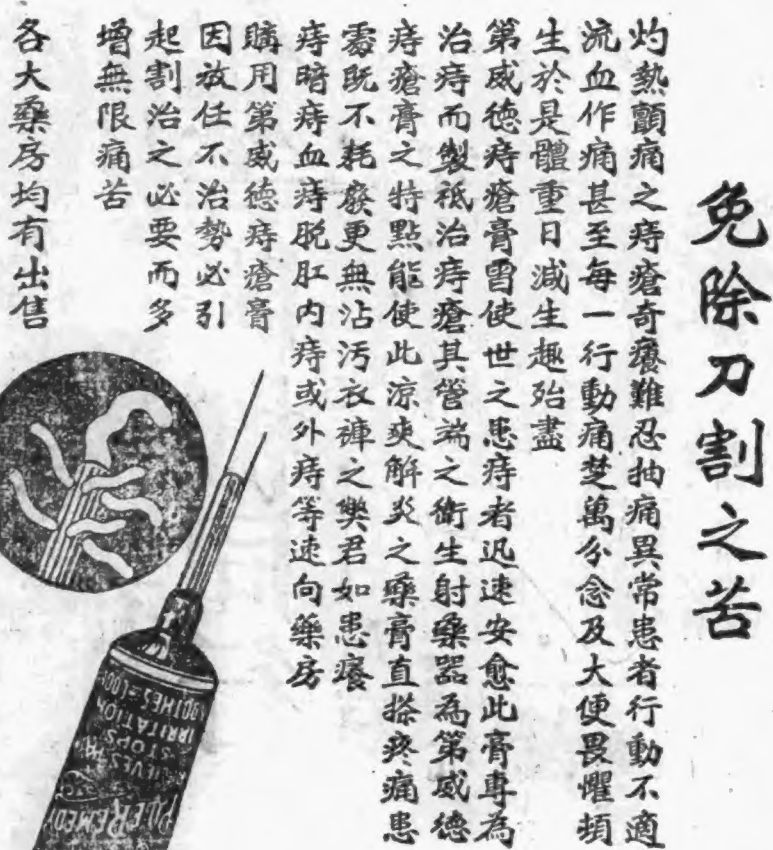 免除刀割之苦
灼熱顫痛之痔瘡奇癢難忍抽痛異常患者行動不適
流血作痛甚至每一行動痛楚萬分念及大便畏懼頻
生於是體重日減生趣殆盡
第威德痔瘡膏曾使世之患痔者迅速安愈此膏專為
治痔而製祗治痔瘡其管端之衛生射藥器為第威德
痔瘡膏之特點能使此涼爽解炎之藥膏直搽疼痛患
處既不耗廢更無沾污衣褲之獘君如患癢
痔暗痔血痔脫肛內痔或外痔等速向藥房
購用第威德痔瘡膏
因放任不治勢必引
起割治之必要而多
增無限痛苦
各大藥房均有出售
PILE REMEDY
STOPS
IRRITATION
SOOTHES-COOLS